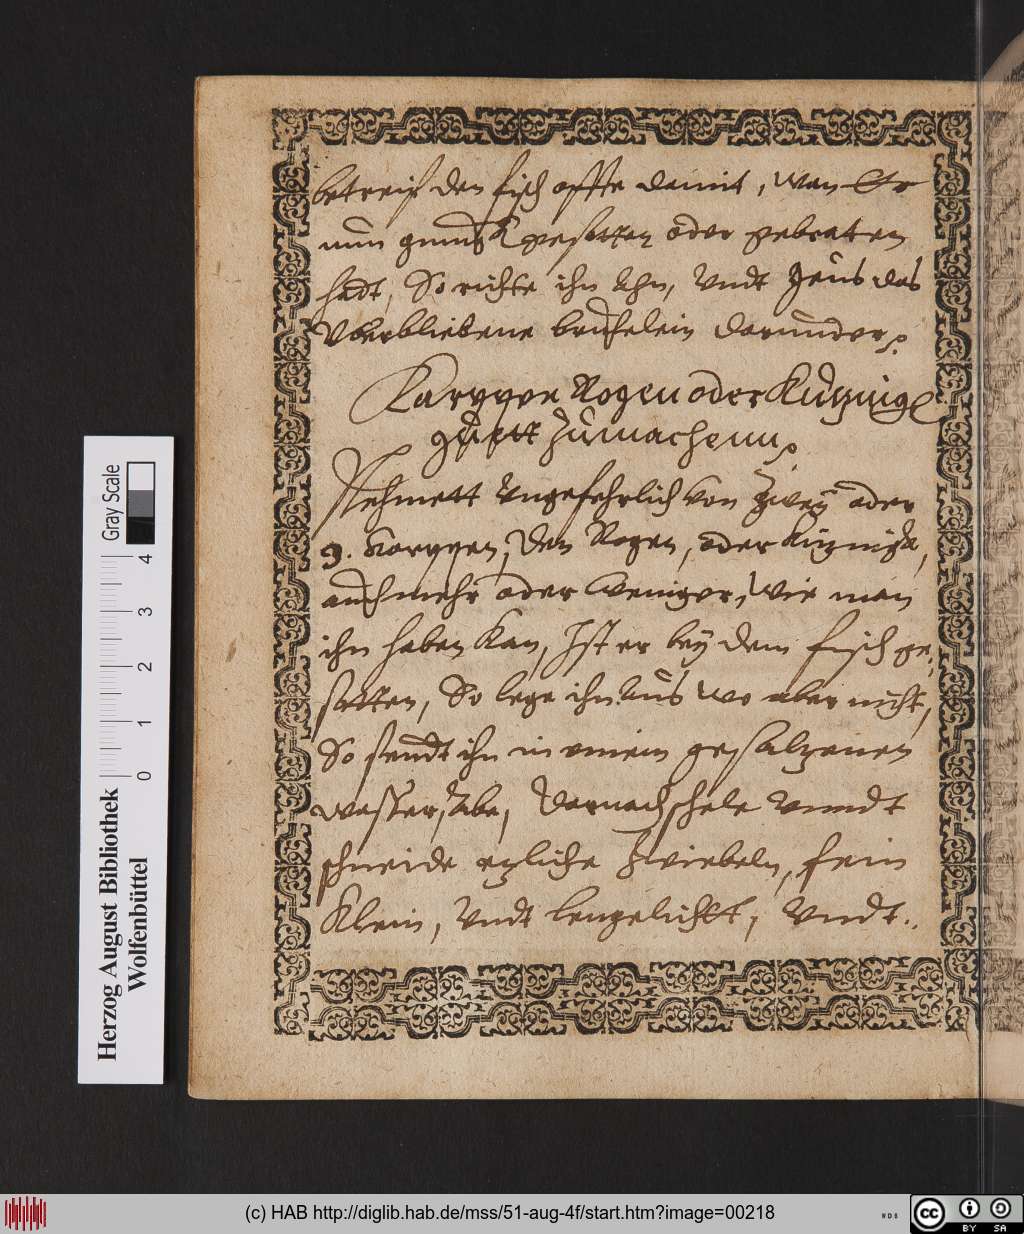 betreif den fisch offte damit, wan Er
nun genug gesotten oder gebraten
hadt, So richte ihn Ahn, Undt geus das
Uberbliebene bruhelein darunder.
Karppen Rogen oder
guett Zumachenn.
Nehmett Ungefehrlich von Zweÿ oder
3. Karppen, Den Rogen, oder
auch mehr oder weniger, Wie man
ihn haben Kan, Ist er beÿ dem fisch ge-
sotten, So lege ihn aus wo aber nicht,
So seudt ihn in einem gesalzenen
wasser, Abe, Darnach schele Unndt
schneide ezliche Zwiebeln, fein
Klein, Undt lengelichtt, Undt.
Herzog August Bibliothek
Wolfenbüttel
Gray Scale
0 1 2 3 4
(c) HAB http://diglib.hab.de/mss/51-aug-4f/start.htm?image=00218
WDB
cc BY SA